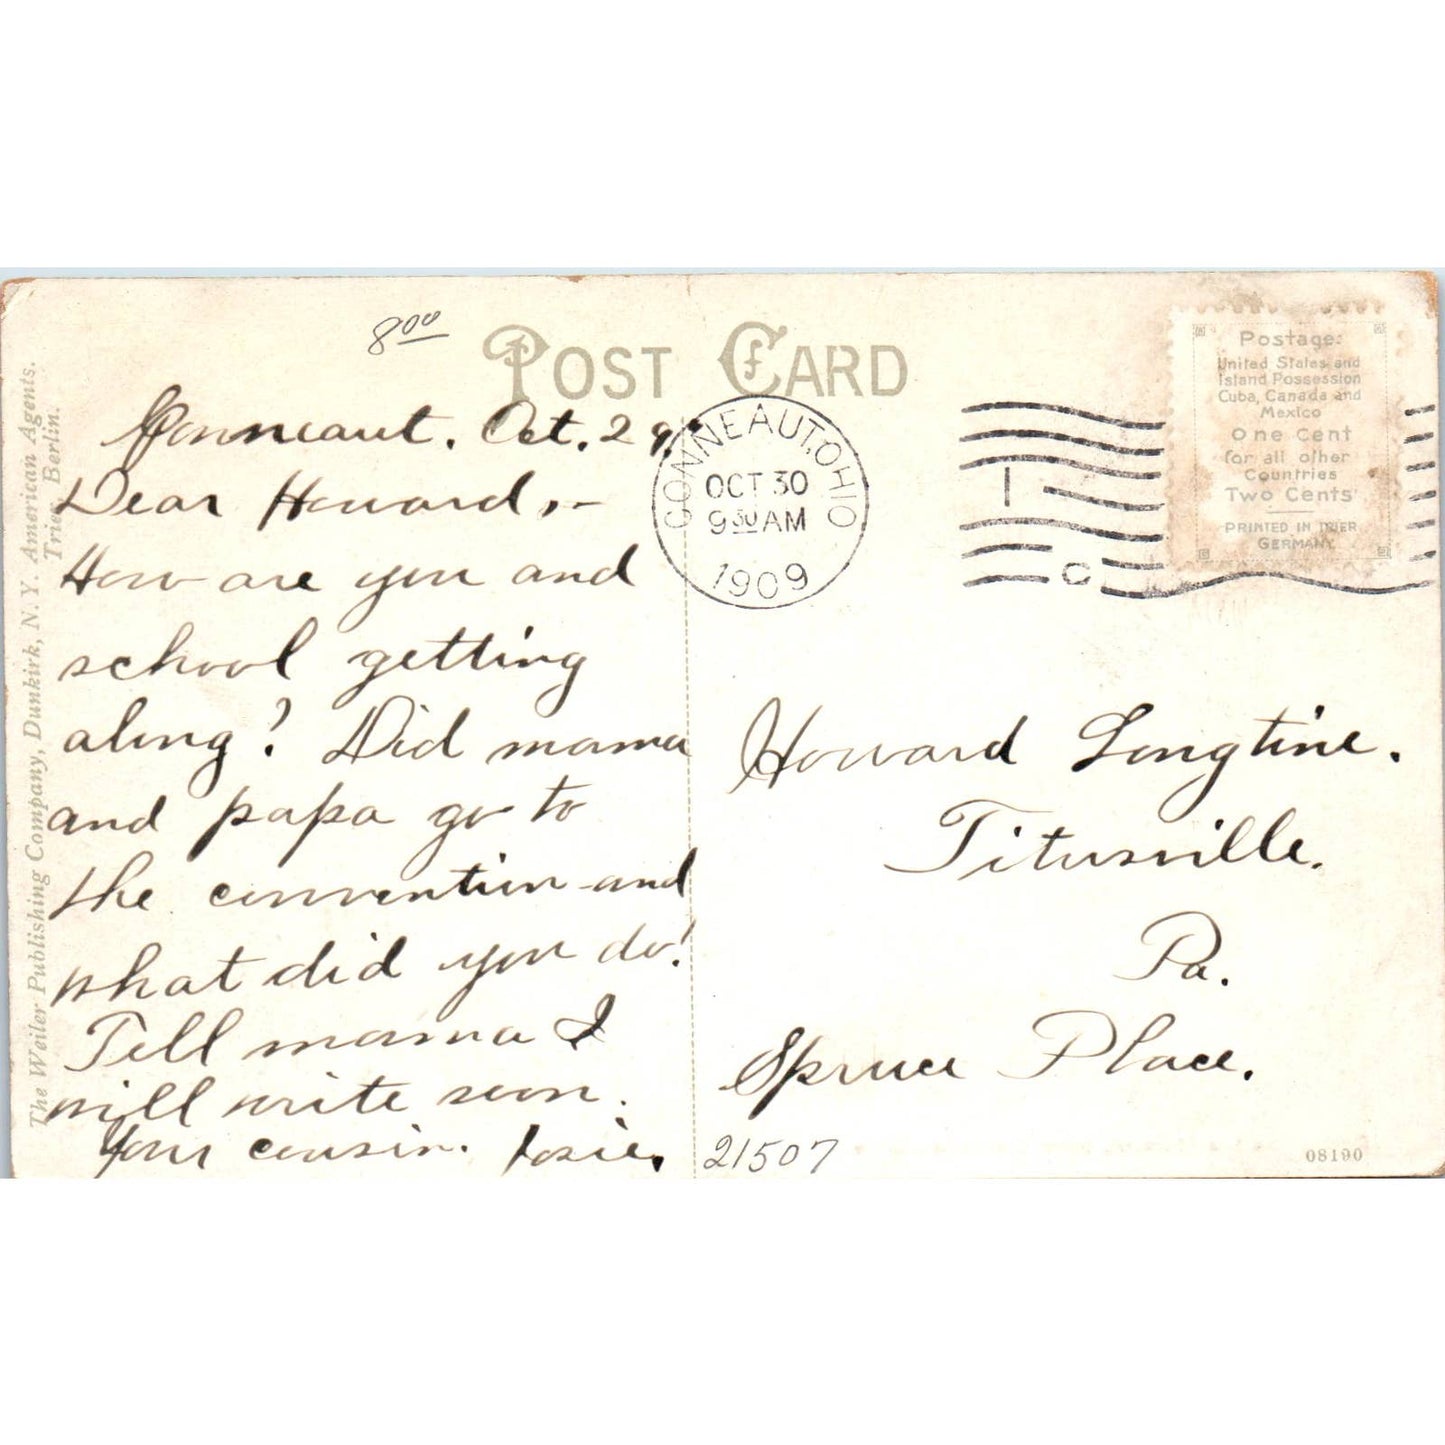 8 00
POST CARD
Conneaut. Oct. 29,
Dear Howard,-
How are you and
school getting
along? Did mama
and papa go to
the convention and
what did you do?
Tell mama I
will write soon.
Your cousin. Josie.
The Weiler Publishing Company, Dunkirk, N. Y. American Agents.
Trier Berlin.
CONNEAUT, OHIO
OCT 30
9 30 AM
1909
Postage:
United States and
Island Possession
Cuba, Canada and
Mexico
One Cent
for all other
Countries
Two Cents
PRINTED IN TRIER
GERMANY
Howard Longtine.
Titusville.
Pa.
Spruce Place.
21507
08190